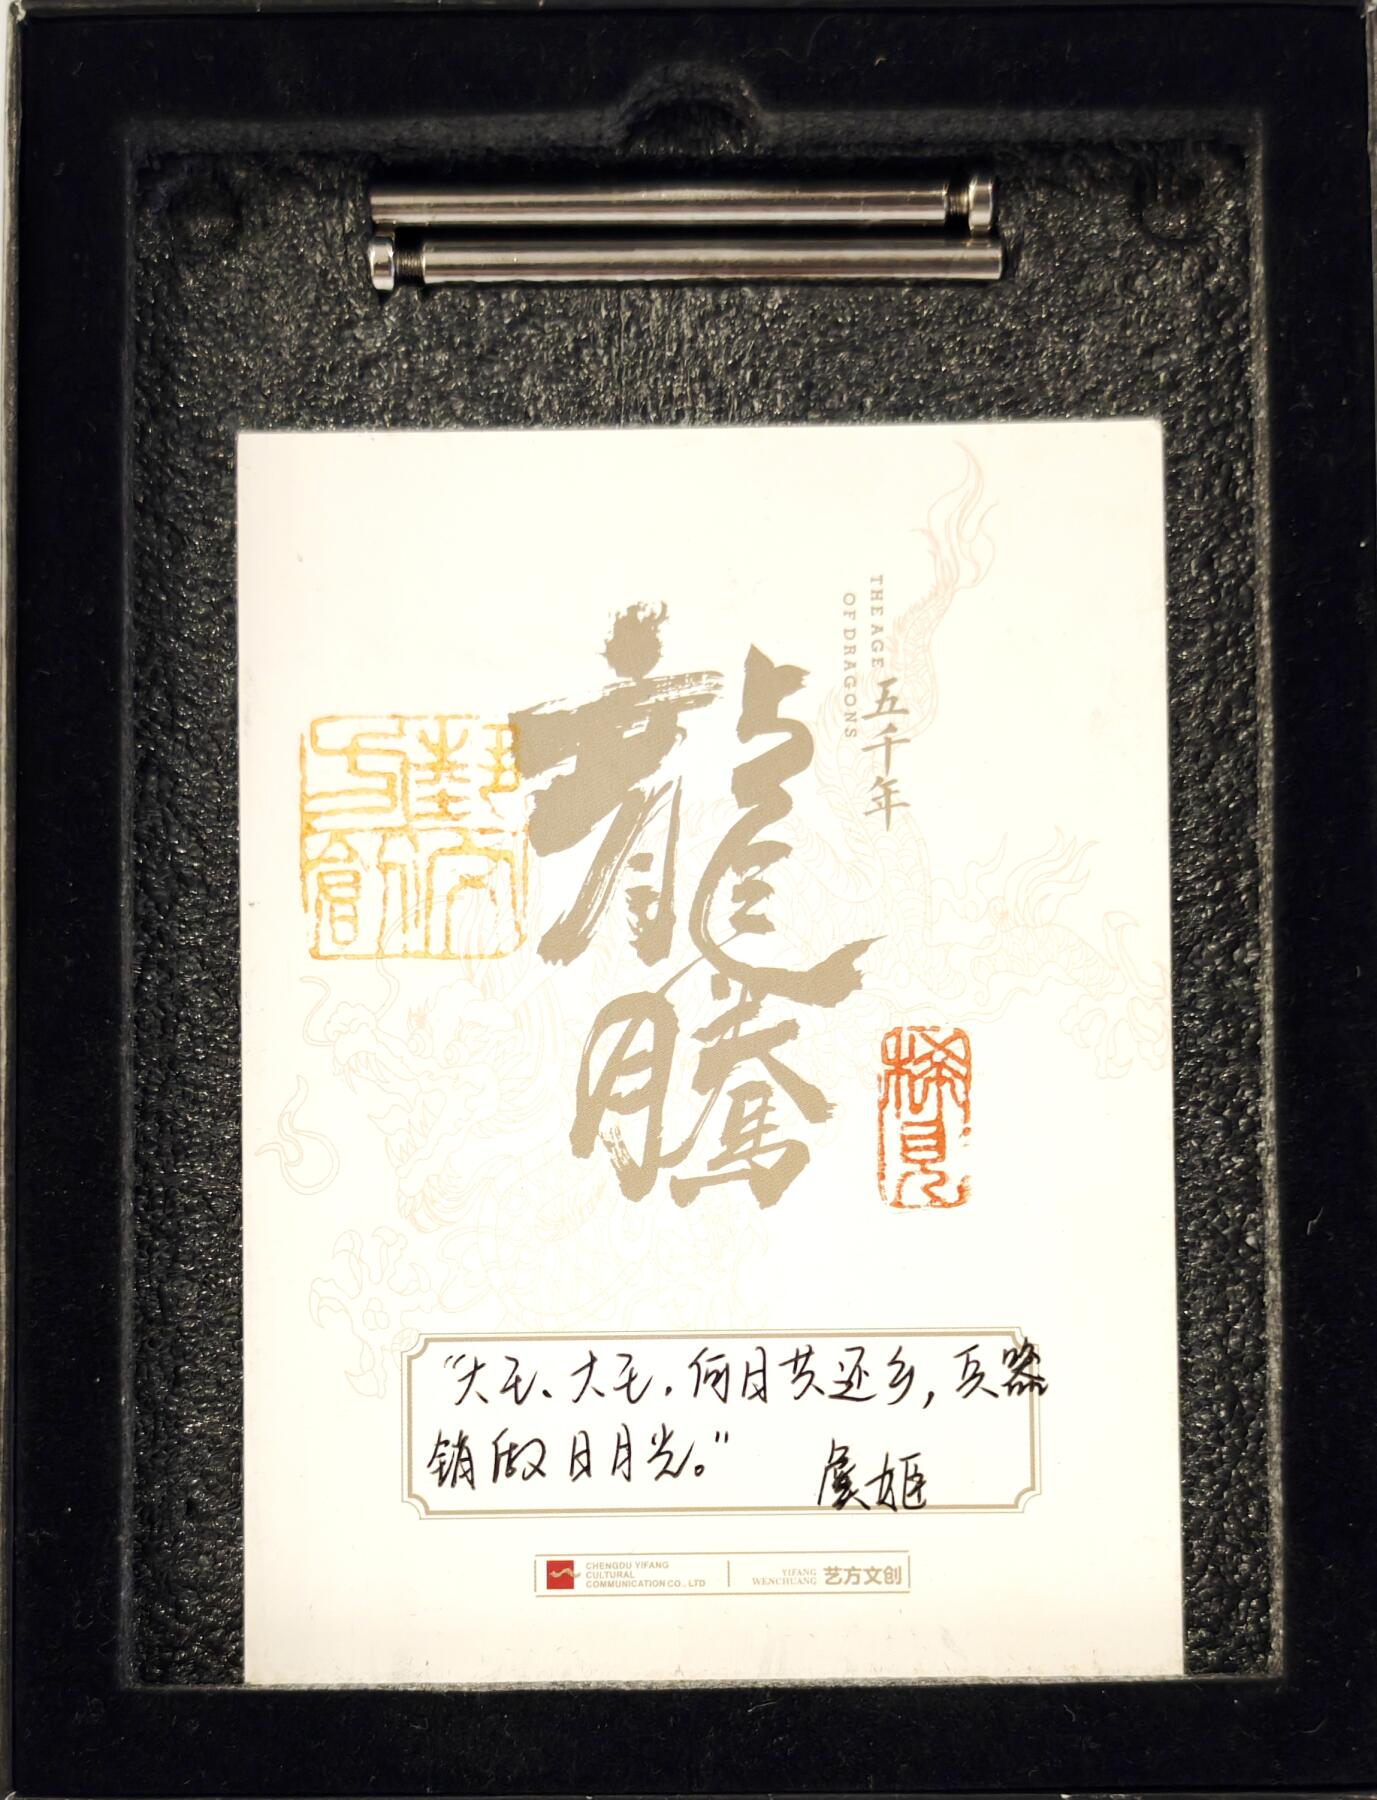 THE AGE
OF DRAGONS
五千年
龍
騰
藝方文創
“大王、大王,何日共还乡,兵器
销做日月光。”
虞姬
CHENGDU YIFANG
CULTURAL
COMMUNICATION CO., LTD
YIFANG
WENCHUANG
艺方文创